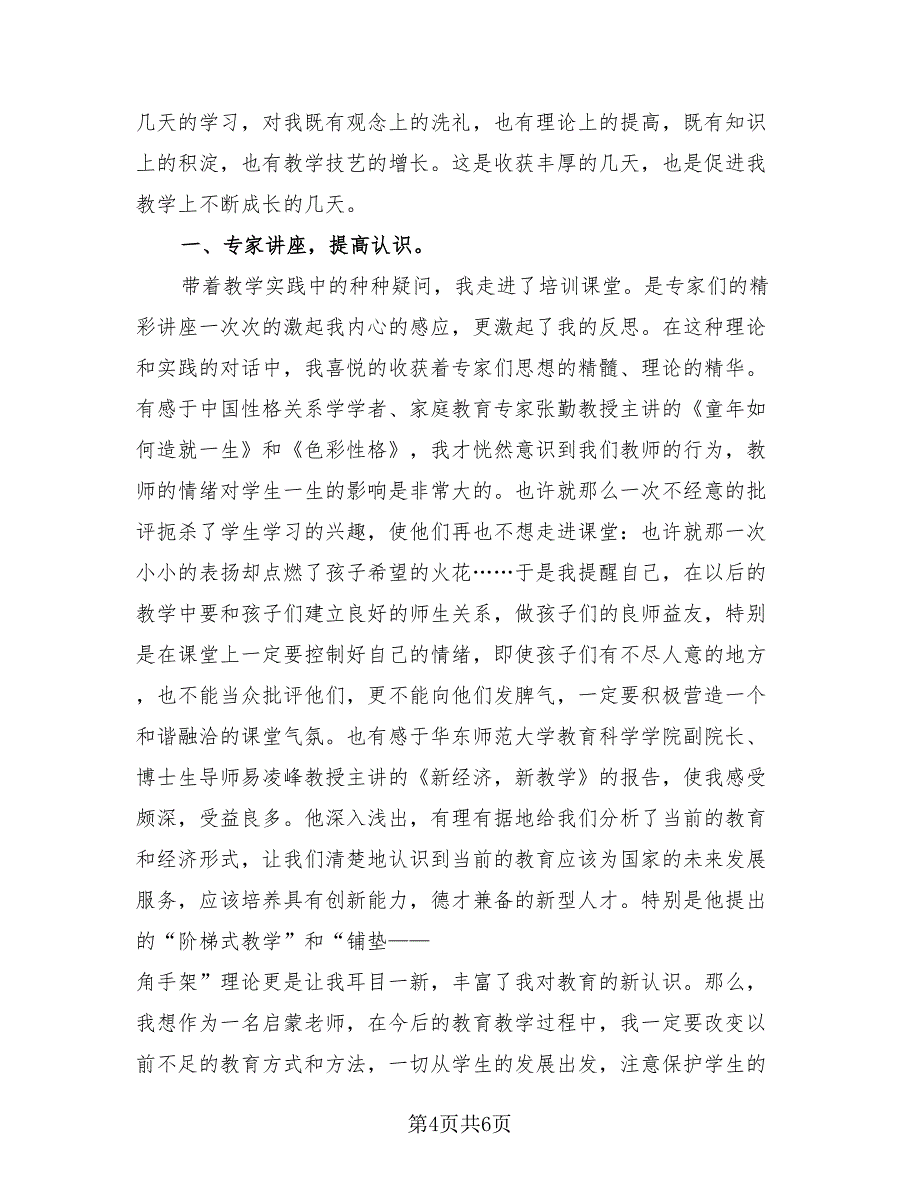 几天的学习，对我既有观念上的洗礼，也有理论上的提高，既有知识
上的积淀，也有教学技艺的增长。这是收获丰厚的几天，也是促进我
教学上不断成长的几天。
一、专家讲座，提高认识。
带着教学实践中的种种疑问，我走进了培训课堂。是专家们的精
彩讲座一次次的激起我内心的感应，更激起了我的反思。在这种理论
和实践的对话中，我喜悦的收获着专家们思想的精髓、理论的精华。
有感于中国性格关系学学者、家庭教育专家张勤教授主讲的《童年如
何造就一生》和《色彩性格》，我才恍然意识到我们教师的行为，教
师的情绪对学生一生的影响是非常大的。也许就那么一次不经意的批
评扼杀了学生学习的兴趣，使他们再也不想走进课堂：也许就那一次
小小的表扬却点燃了孩子希望的火花……于是我提醒自己，在以后的
教学中要和孩子们建立良好的师生关系，做孩子们的良师益友，特别
是在课堂上一定要控制好自己的情绪，即使孩子们有不尽人意的地方
，也不能当众批评他们，更不能向他们发脾气，一定要积极营造一个
和谐融洽的课堂气氛。也有感于华东师范大学教育科学学院副院长、
博士生导师易凌峰教授主讲的《新经济，新教学》的报告，使我感受
颇深，受益良多。他深入浅出，有理有据地给我们分析了当前的教育
和经济形式，让我们清楚地认识到当前的教育应该为国家的未来发展
服务，应该培养具有创新能力，德才兼备的新型人才。特别是他提出
的“阶梯式教学”和“铺垫——
角手架”理论更是让我耳目一新，丰富了我对教育的新认识。那么，
我想作为一名启蒙老师，在今后的教育教学过程中，我一定要改变以
前不足的教育方式和方法，一切从学生的发展出发，注意保护学生的
第4页共6页